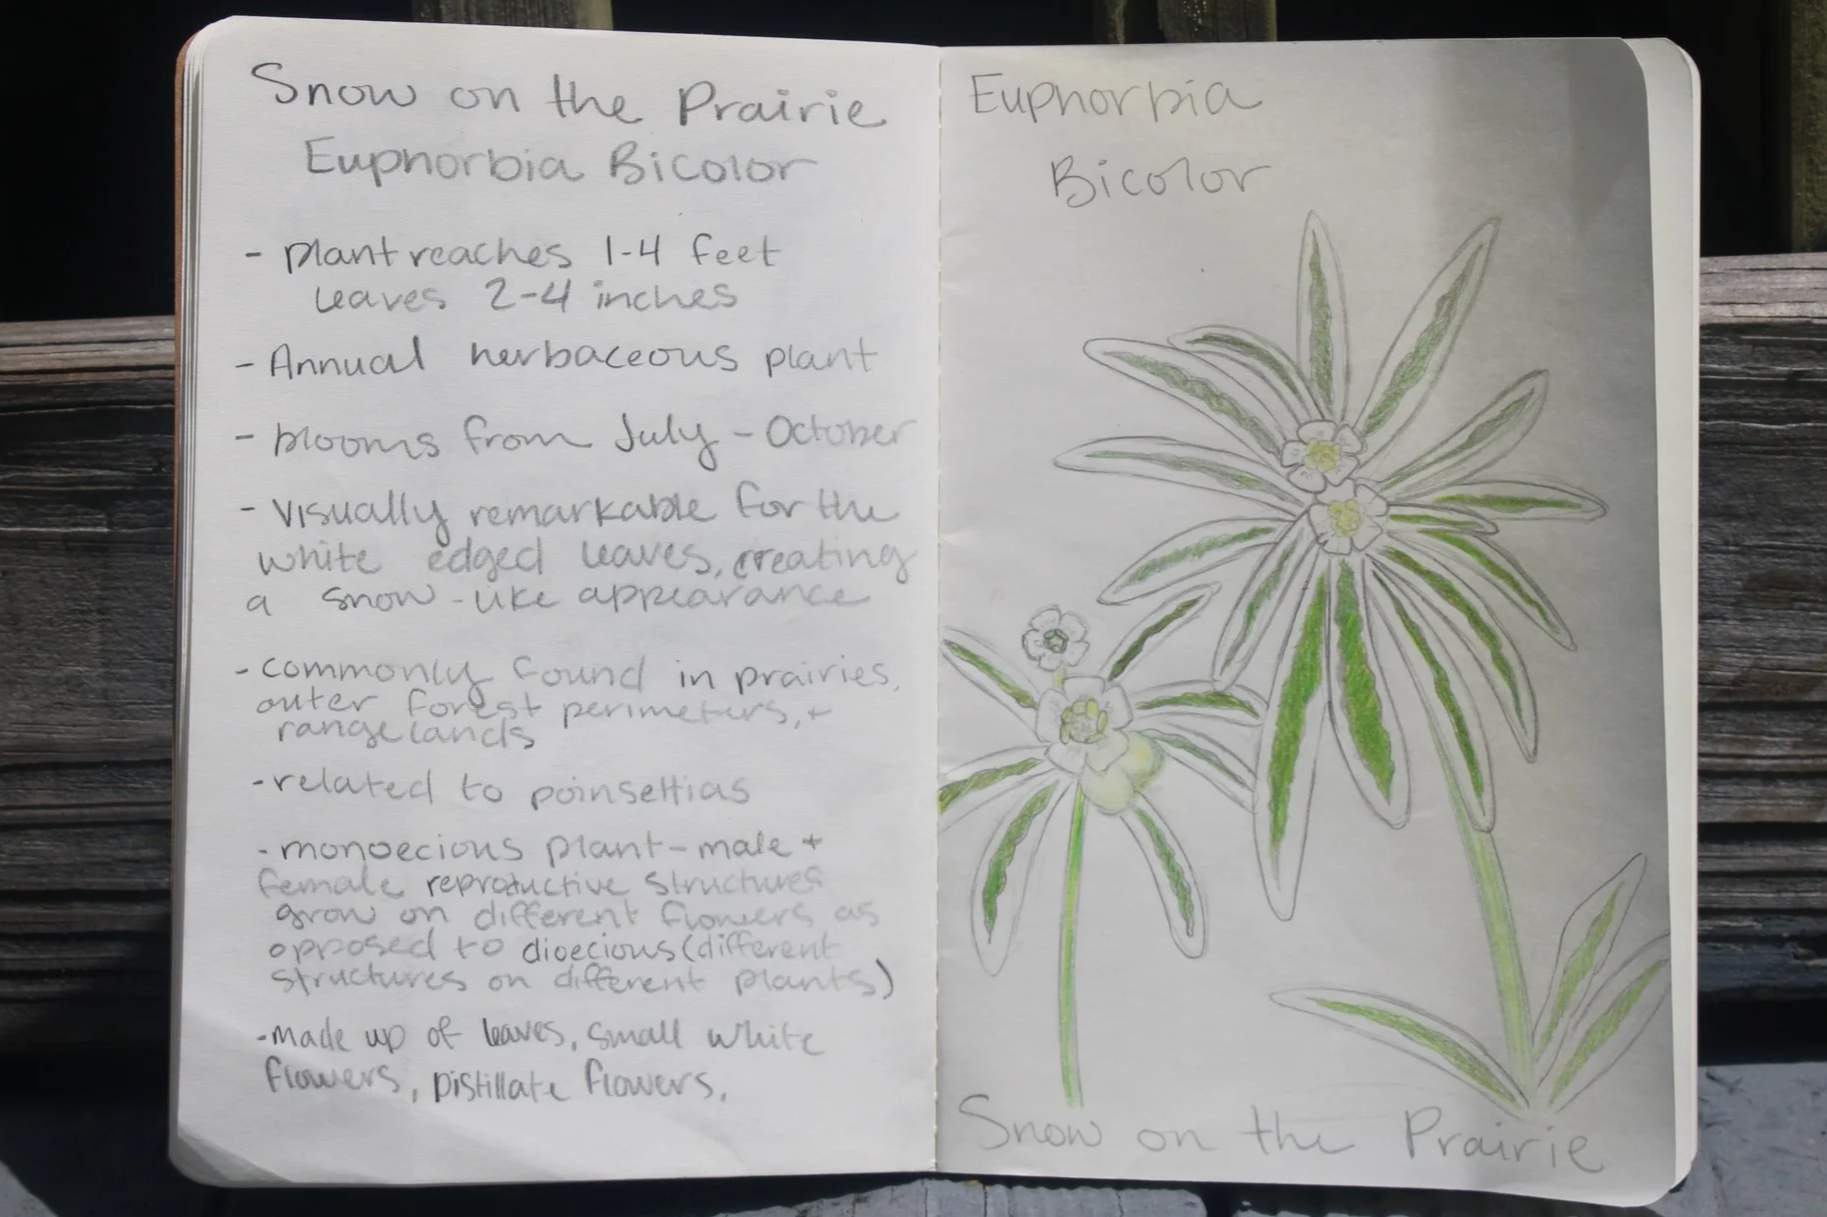 Snow on the Prairie
Euphorbia Bicolor
- plant reaches 1-4 feet
leaves 2-4 inches
- Annual herbaceous plant
- blooms from July - October
- Visually remarkable for the
white edged leaves, creating
a snow-like appearance
- commonly found in prairies,
outer forest perimeters, +
rangelands
- related to poinsettias
- monoecious plant - male +
female reproductive structures
grow on different flowers as
opposed to dioecious (different
structures on different plants)
- made up of leaves, small white
flowers, pistillate flowers,
Euphorbia
Bicolor
Snow on the Prairie